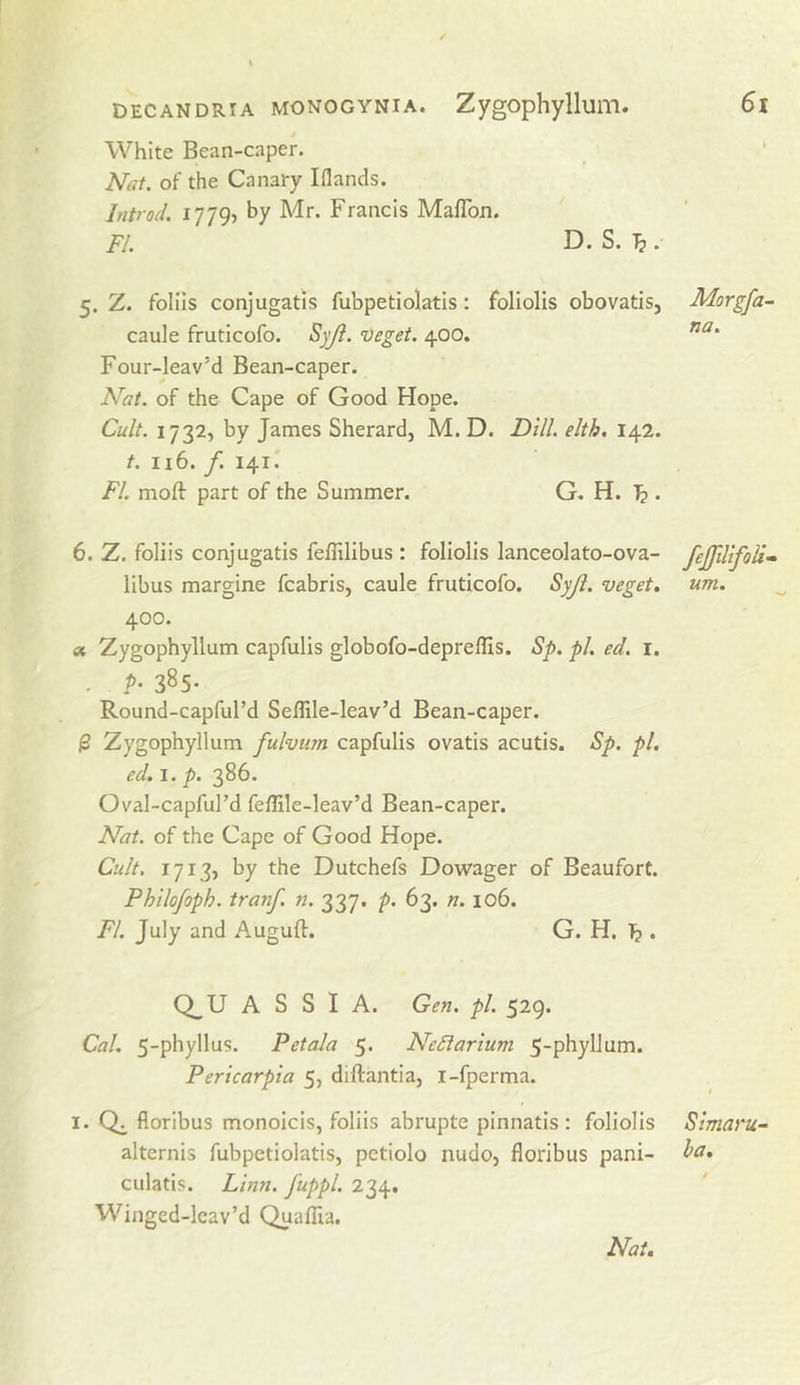 DECANDRIA MONOGYNIA. Zygophyllum. 61
White Bean-caper.
Nat. of the Canary Iſlands.
Introd. 1779, by Mr. Francis Maſſon.
Fl. D. S. ♄.
5. Z. foliis conjugatis ſubpetiolatis: foliolis obovatis, Morgſa-
caule fruticoſo. Syſt. veget. 400. na.
Four-leav'd Bean-caper.
Nat. of the Cape of Good Hope.
Cult. 1732, by James Sherard, M. D. Dill. elth. 142.
t. 116. f. 141.
Fl. moſt part of the Summer. G. H. ♄.
6. Z. foliis conjugatis ſeſſilibus: foliolis lanceolato-ova- ſeſſilifoli-
libus margine ſcabris, caule fruticoſo. Syſt. veget. um.
400.
α Zygophyllum capſulis globoſo-depreſſis. Sp. pl. ed. 1.
p. 385.
Round-capſul'd Seſſile-leav'd Bean-caper.
β Zygophyllum fulvum capſulis ovatis acutis. Sp. pl.
ed. 1. p. 386.
Oval-capſul'd ſeſſile-leav'd Bean-caper.
Nat. of the Cape of Good Hope.
Cult. 1713, by the Dutcheſs Dowager of Beaufort.
Philoſoph. tranſ. n. 337. p. 63. n. 106.
Fl. July and Auguſt. G. H. ♄.
QUASSIA. Gen. pl. 529.
Cal. 5-phyllus. Petala 5. Nectarium 5-phyllum.
Pericarpia 5, diſtantia, 1-ſperma.
1. Q. floribus monoicis, foliis abrupte pinnatis: foliolis Simaru-
alternis ſubpetiolatis, petiolo nudo, floribus pani- ba.
culatis. Linn. ſuppl. 234.
Winged-leav'd Quaſſia.
Nat.